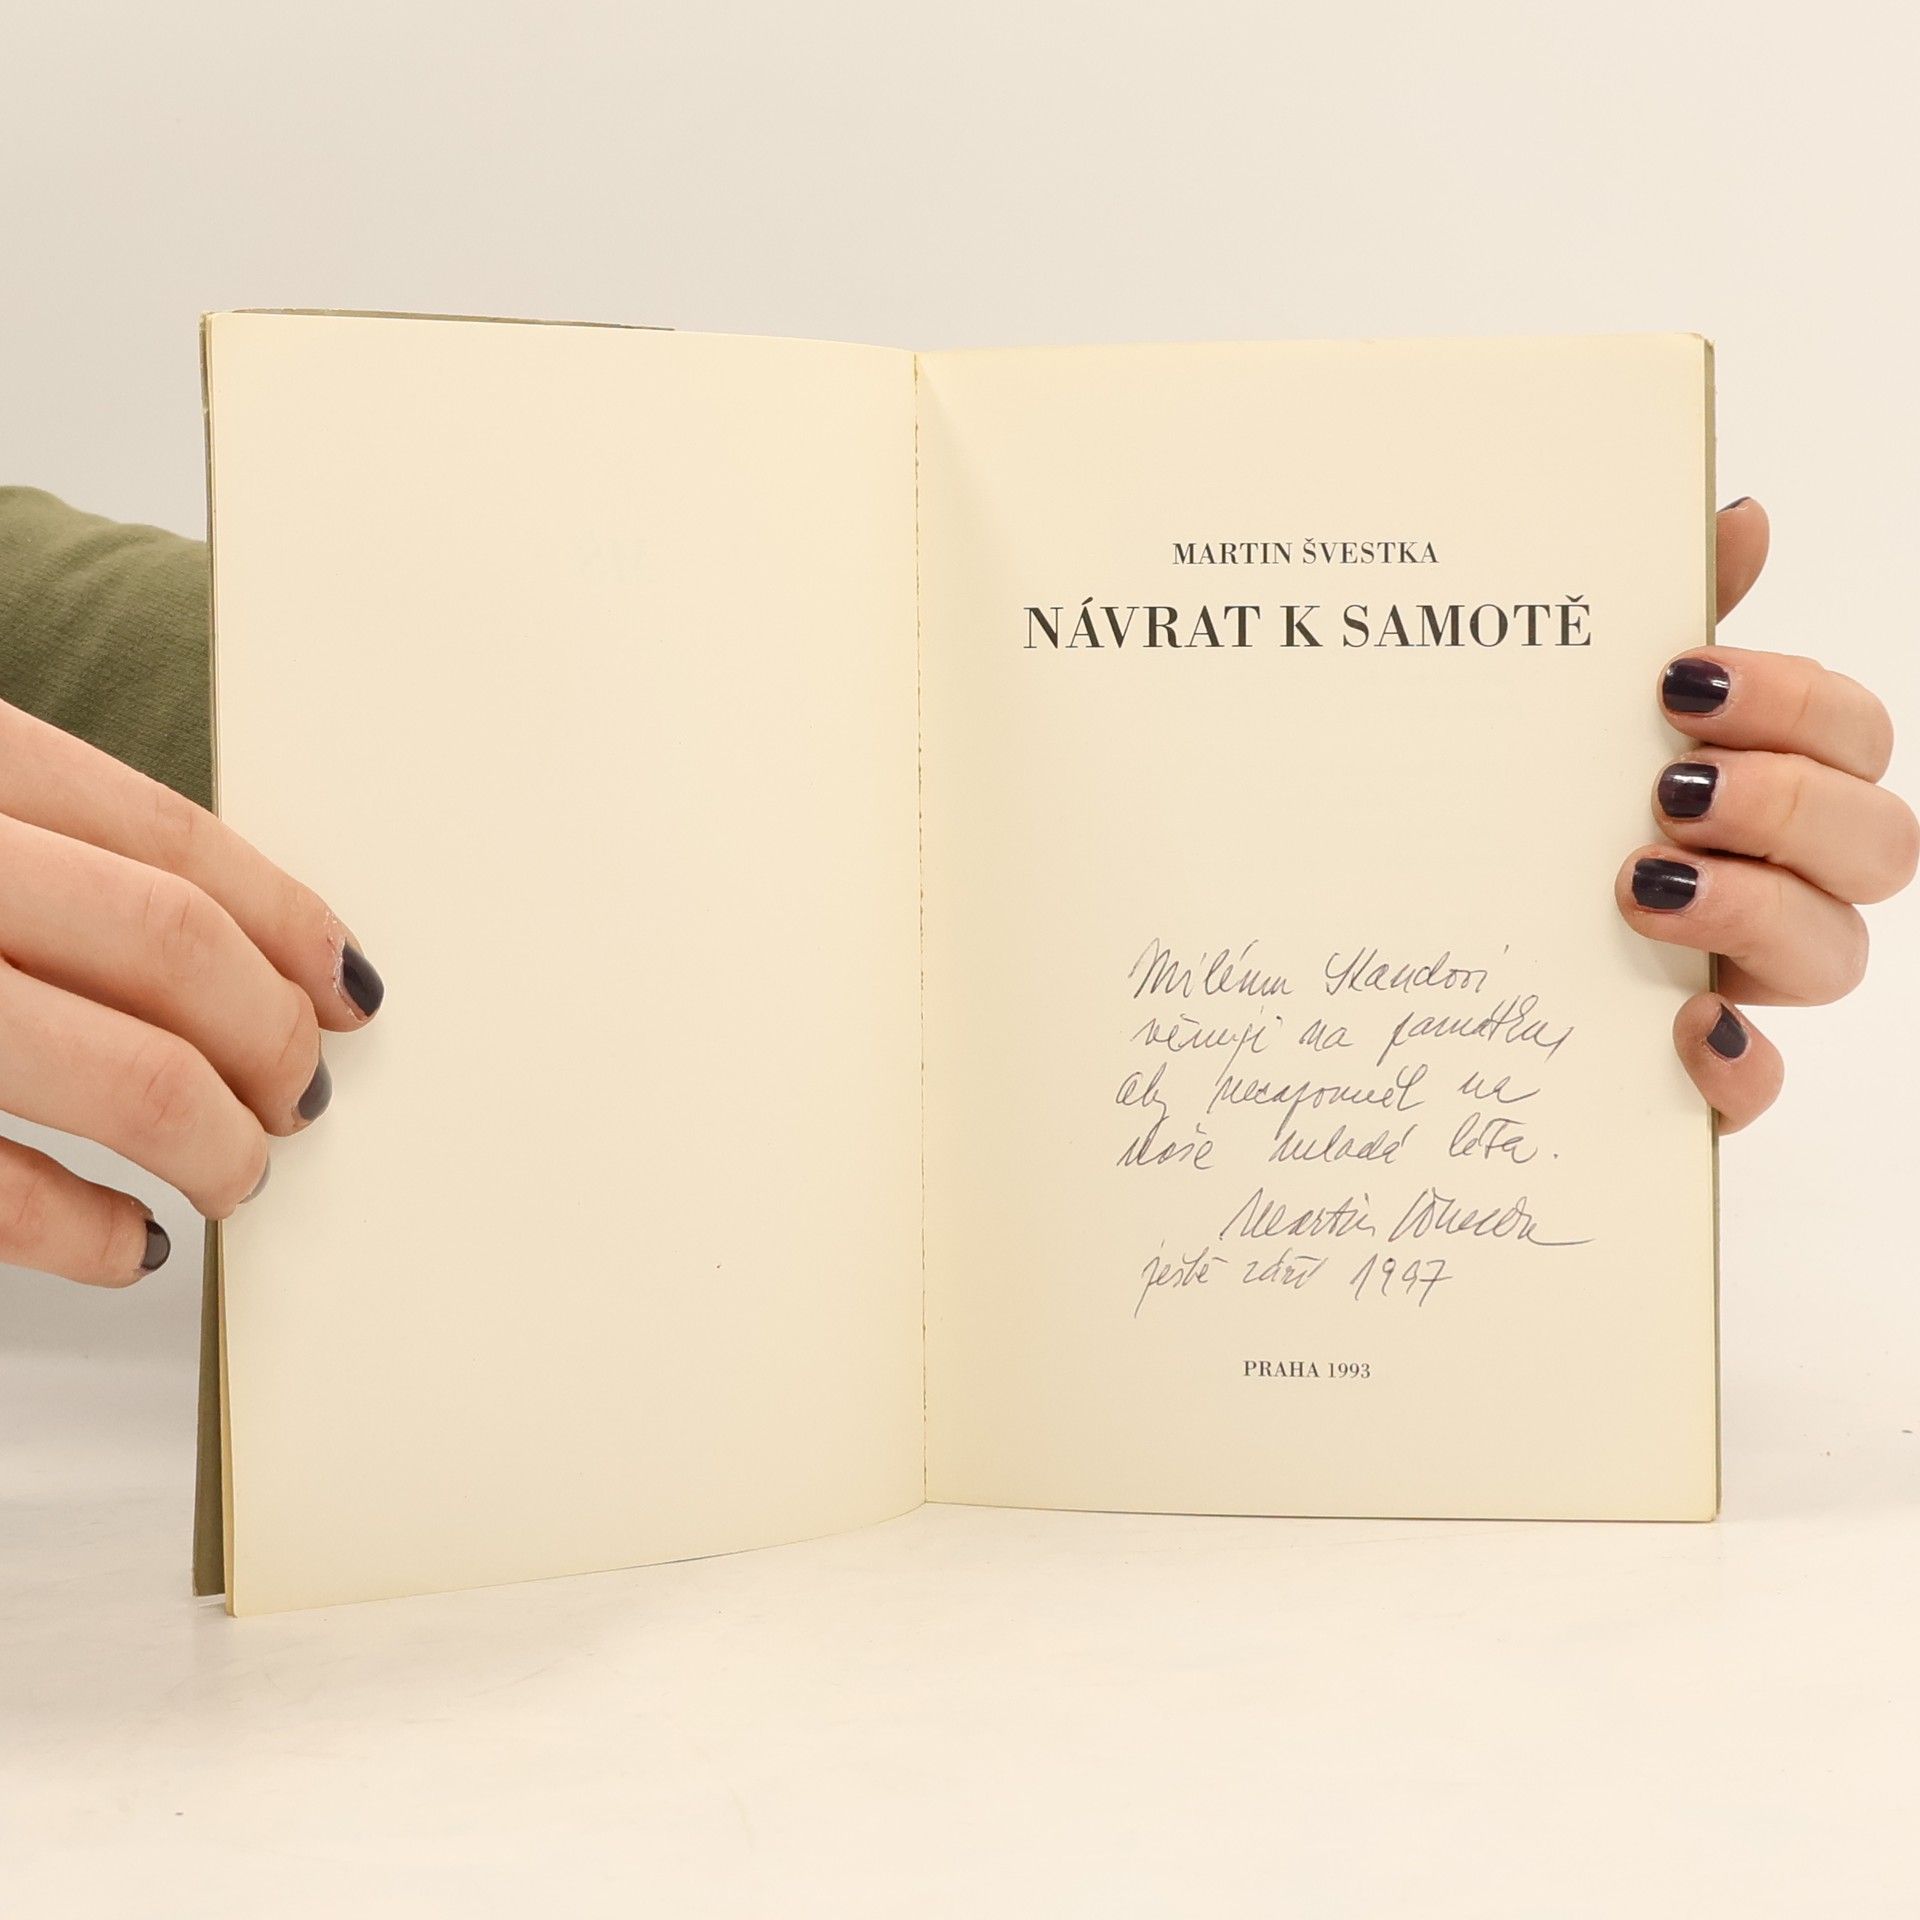 MARTIN ŠVESTKA
NÁVRAT K SAMOTĚ
Milému Standovi
věnuji na památku,
aby nezapomněl na
naše mladá léta.
Martin Švestka
ještě září 1997
PRAHA 1993